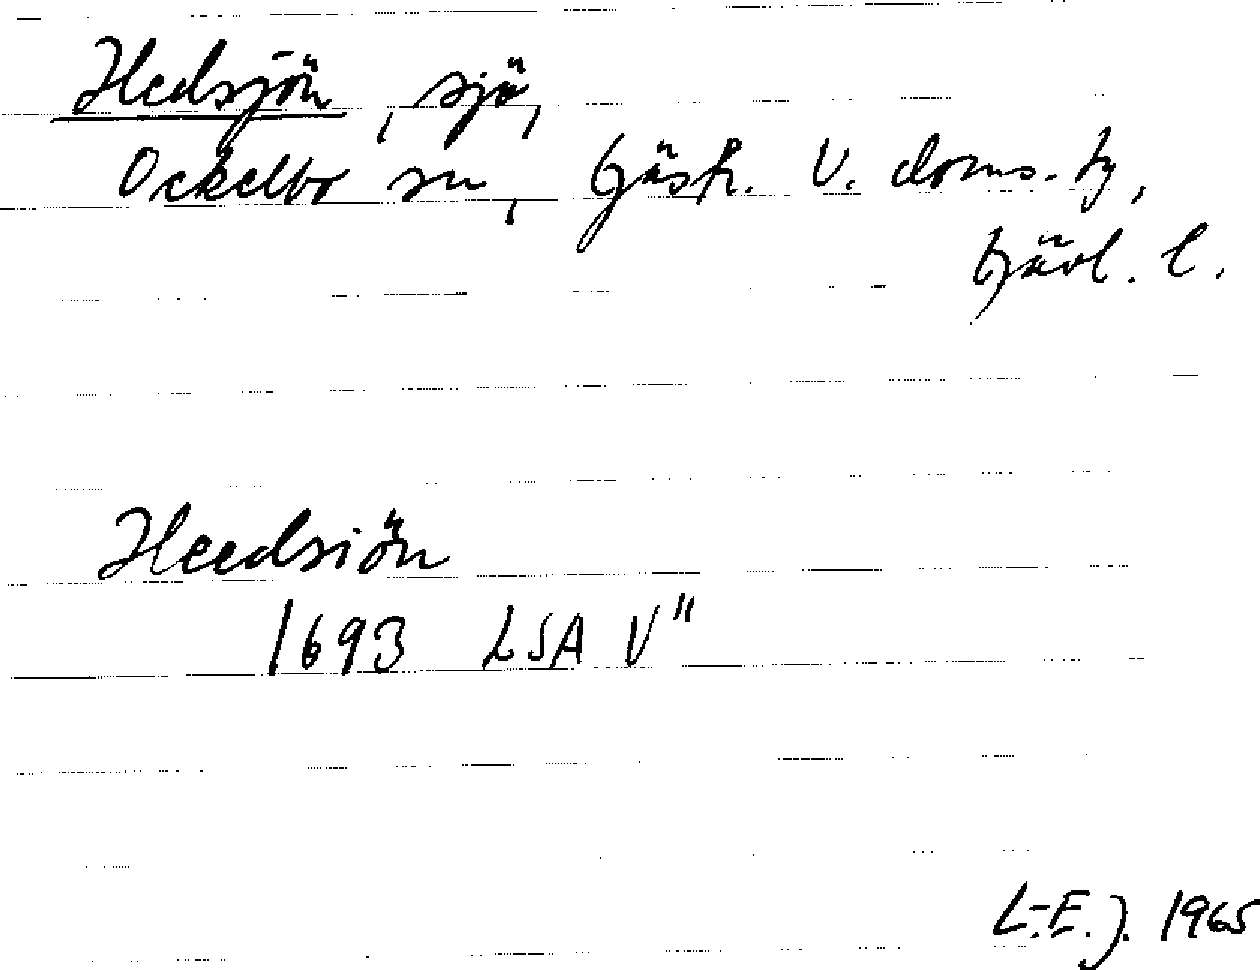 Hedsjön, sjö,
Ockelbo sn, Gästr. V. doms. tg,
Gävl. l.
Heedsiön
1693 LSA V"
L.-E. J. 1965